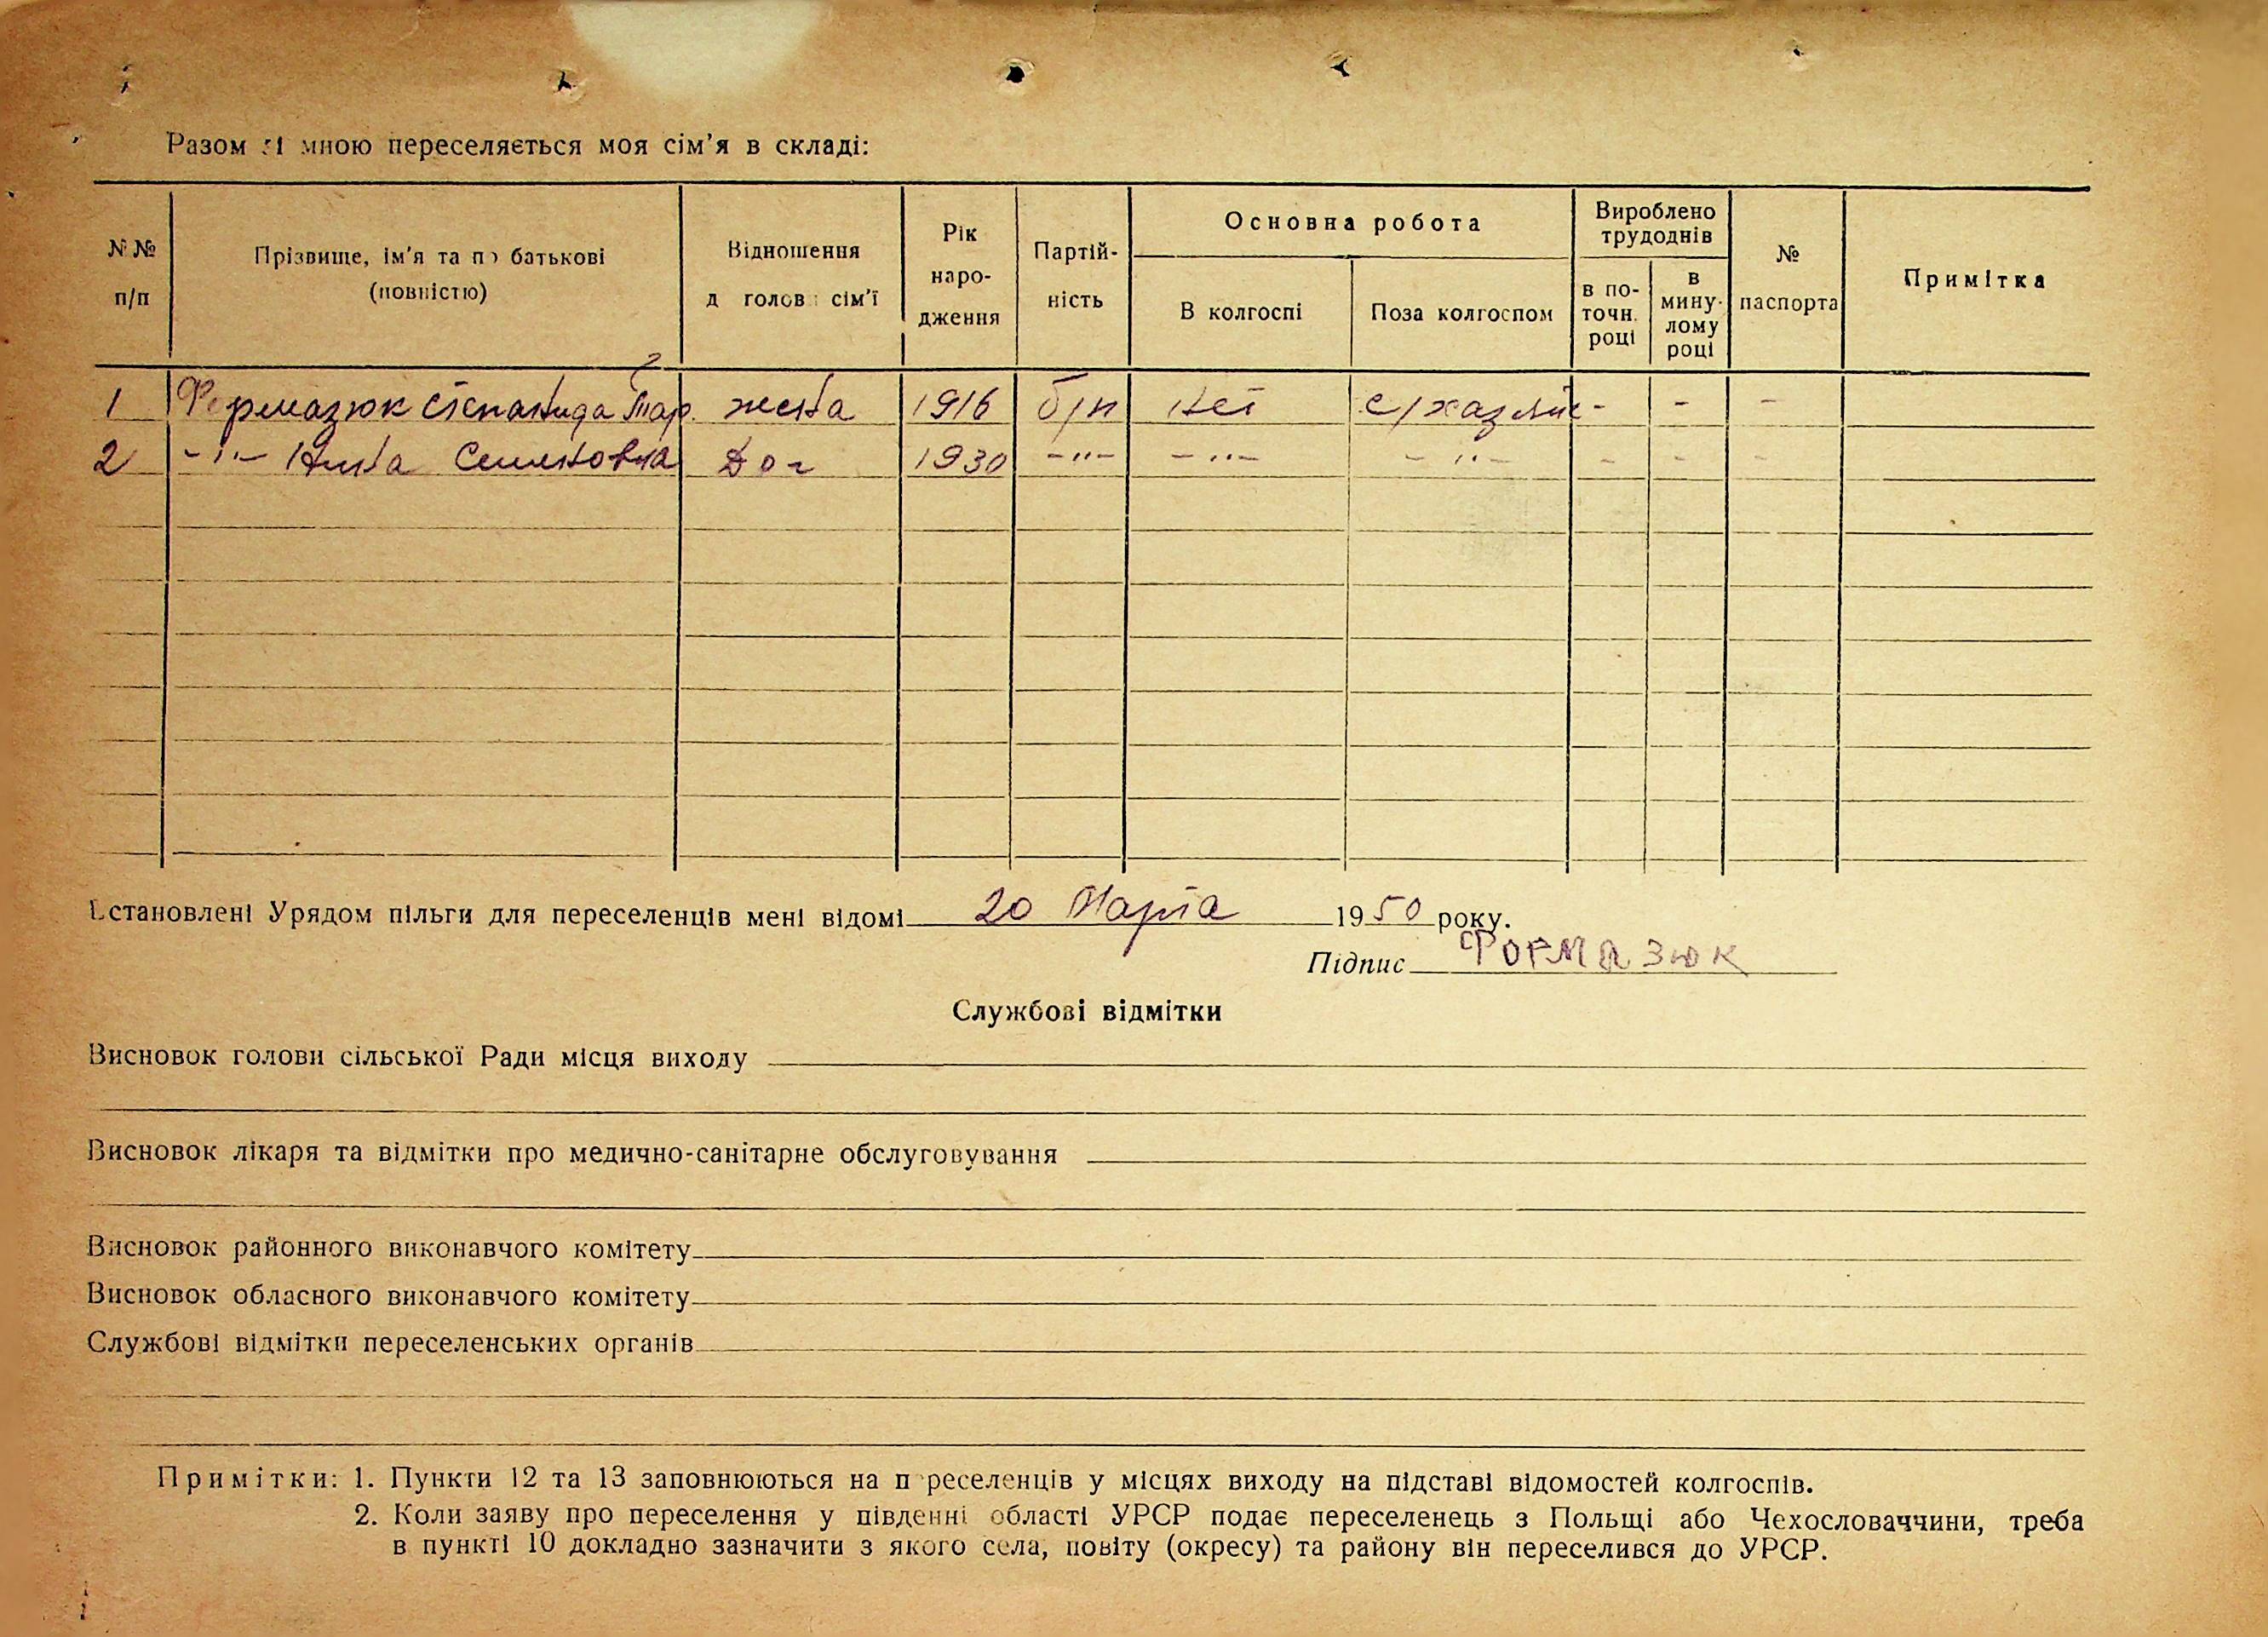 Разом зі мною переселяється моя сім'я в складі:
№№ п/п
Прізвище, ім'я та по батькові (повністю)
Відношення до голови сім'ї
Рік народження
Партій-ність
Основна робота
В колгоспі
Поза колгоспом
Вироблено трудоднів
в по-точн. році
в мину-лому році
№ паспорта
Примітка
1 Формазюк Степанида Тар. жена 1916 б/п нет - - -
2 -"- Анна Семеновна Доч 1930 -"- -"- -"- - - -
Встановлені Урядом пільги для переселенців мені відомі 20 Марта 1950 року.
Підпис Формазюк
Службові відмітки
Висновок голови сільської Ради місця виходу
Висновок лікаря та відмітки про медично-санітарне обслуговування
Висновок районного виконавчого комітету
Висновок обласного виконавчого комітету
Службові відмітки переселенських органів
Примітки: 1. Пункти 12 та 13 заповнюються на переселенців у місцях виходу на підставі відомостей колгоспів.
2. Коли заяву про переселення у південні області УРСР подає переселенець з Польщі або Чехословаччини, треба
в пункті 10 докладно зазначити з якого села, повіту (окресу) та району він переселився до УРСР.